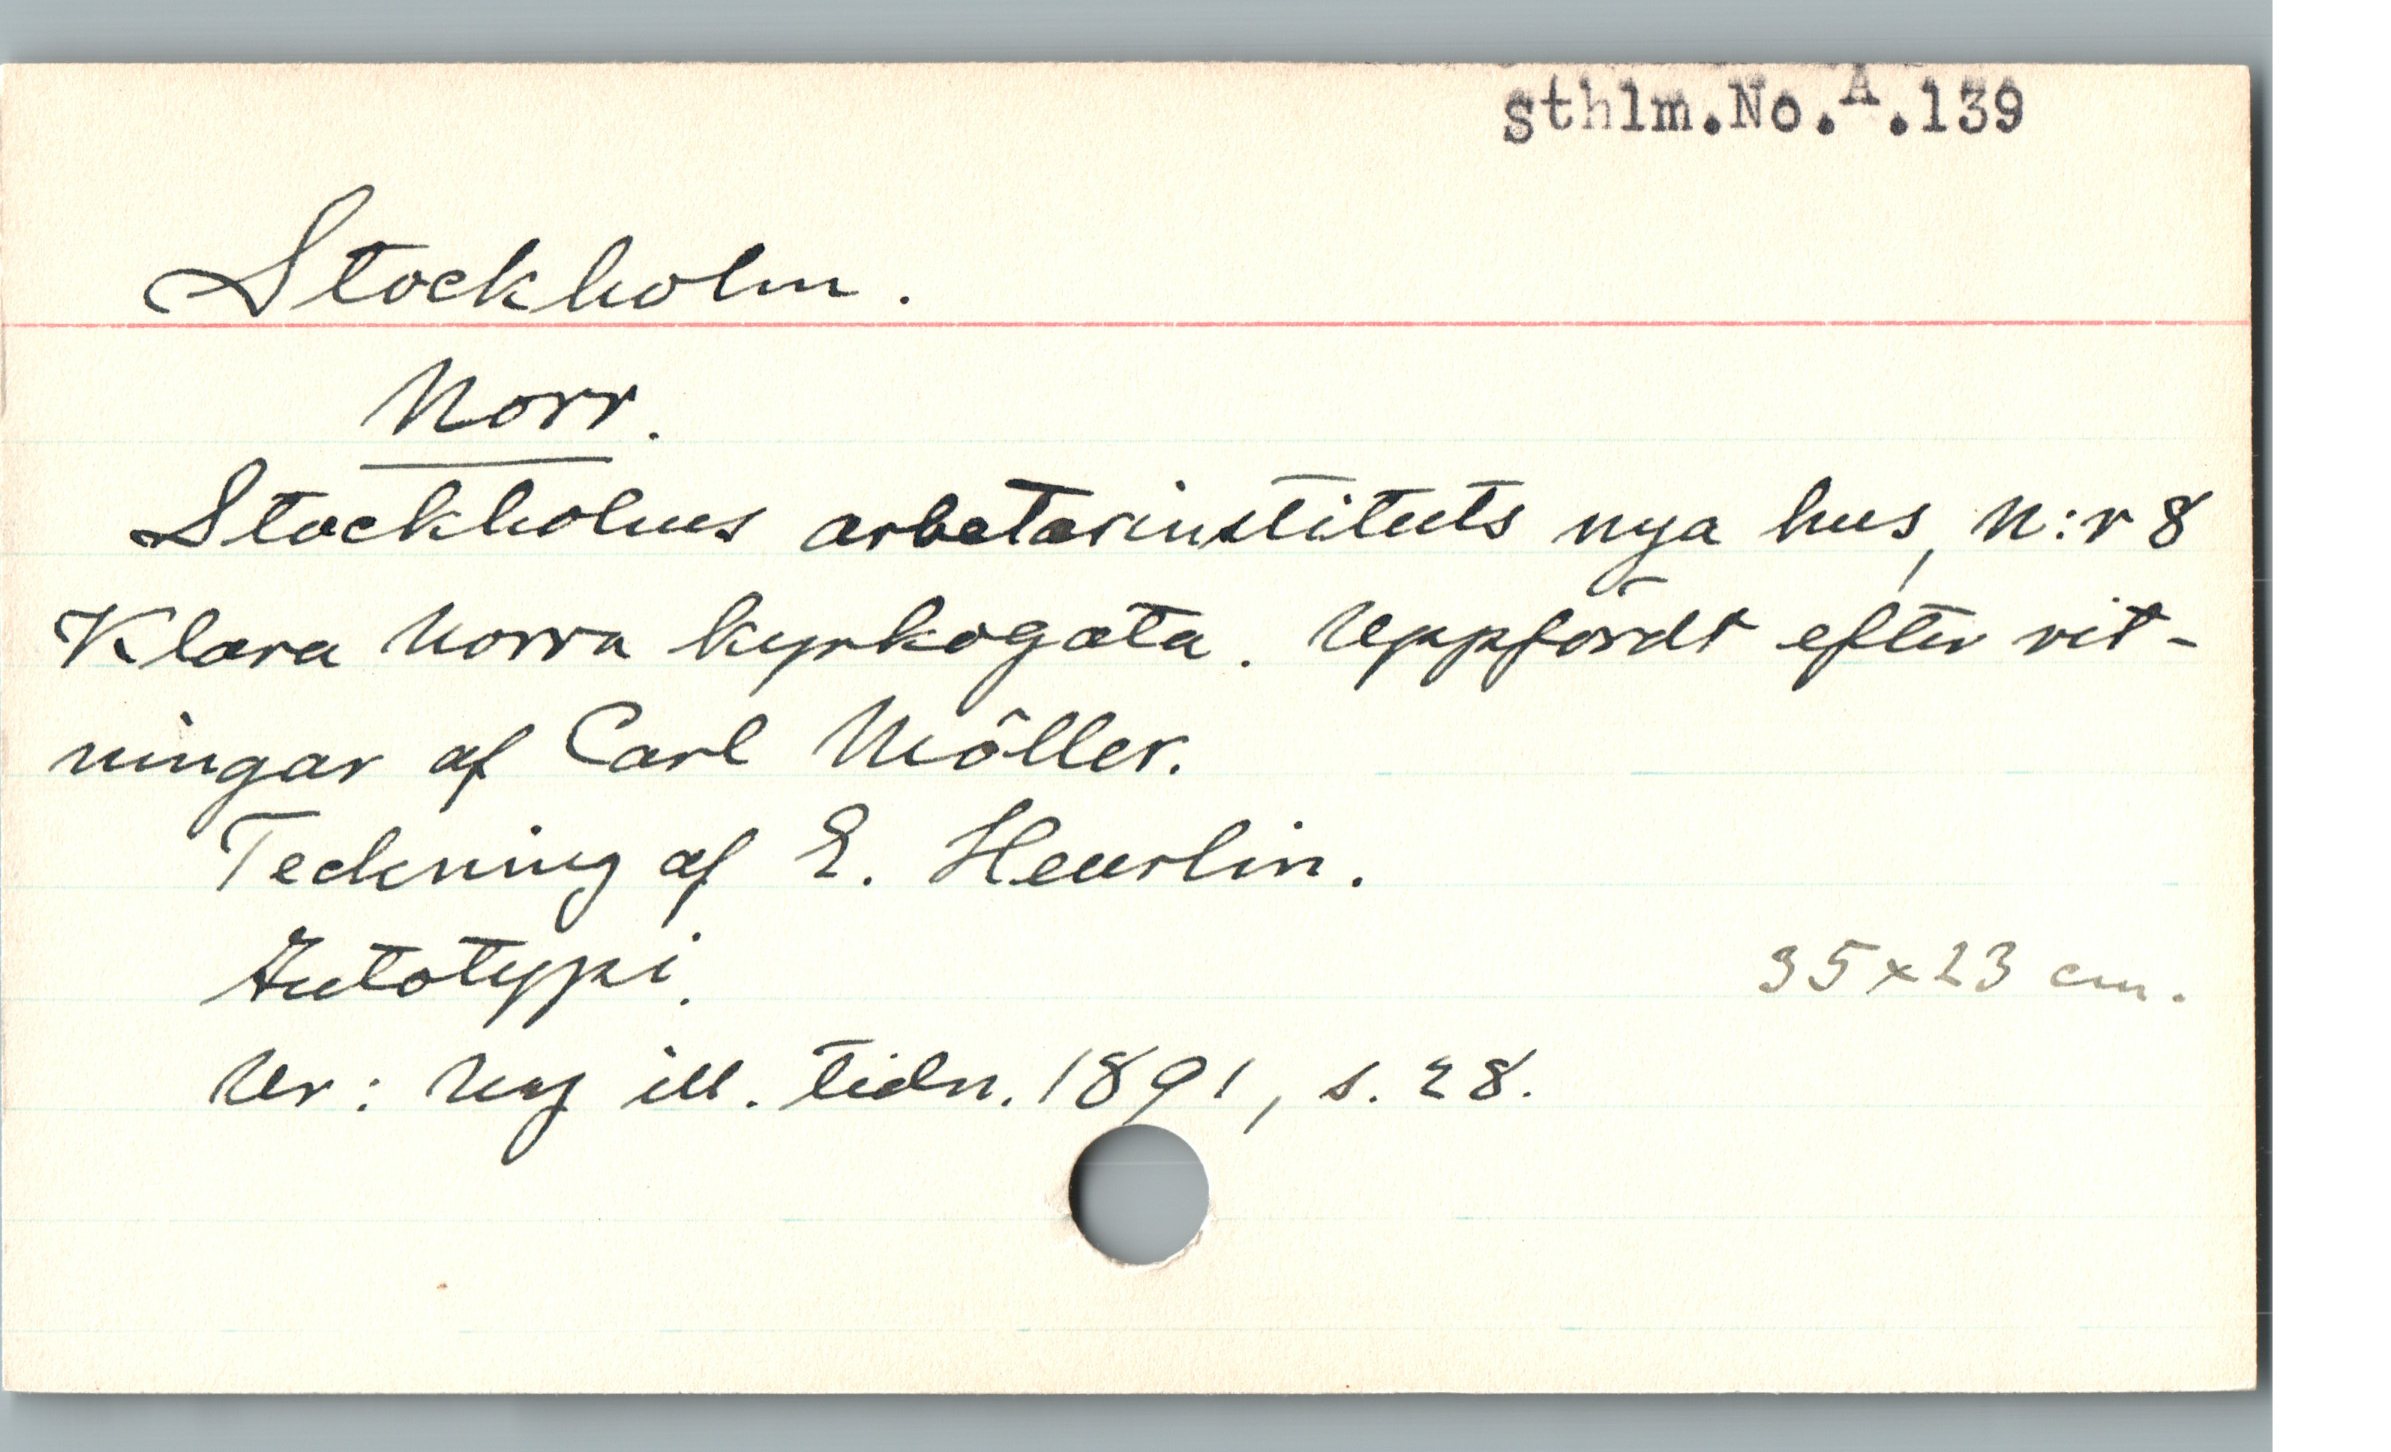 sthlm.No.A.139
Stockholm.
Norr.
Stockholms arbetarinstituts nya hus, N:r 8
Klara Norra kyrkogata. Uppfördt efter rit-
ningar af Carl Möller.
Teckning af E. Heurlin.
Autotypi.
35x23 cm.
Ur: Ny ill. tidn. 1891, s. 28.